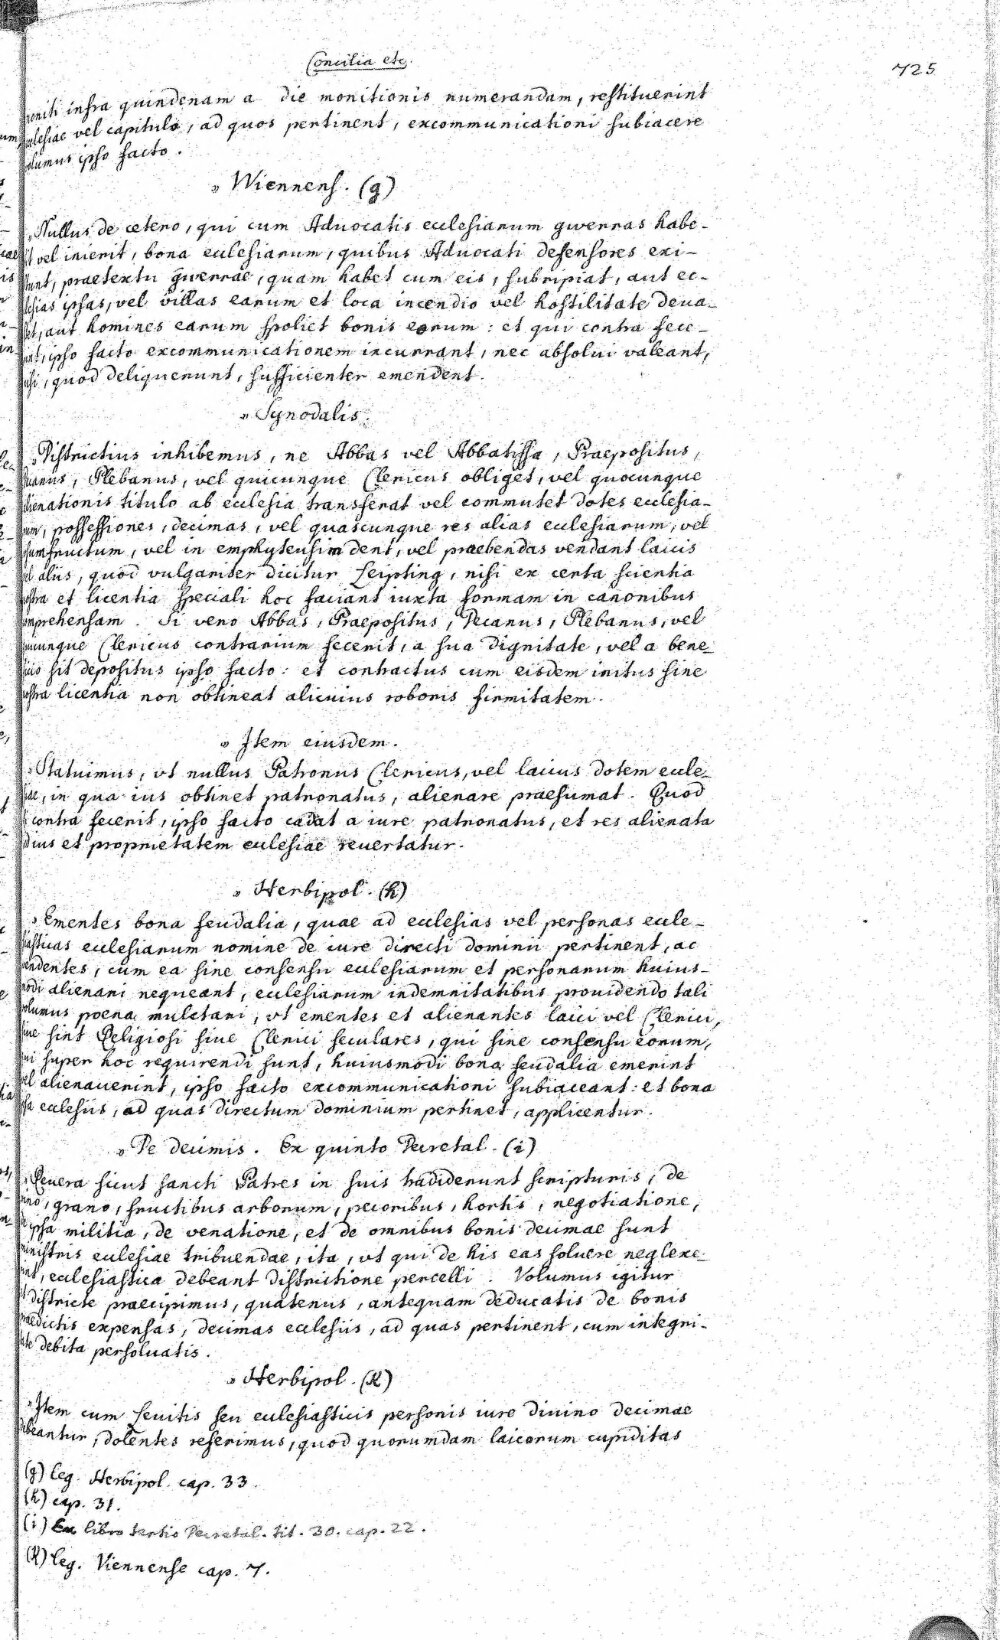 Concilia etc.
725
moniti infra quindenam a die monitionis numerandam, restituerint
ecclesiae vel capitulo, ad quos pertinent, excommunicationi subiacere
volumus ipso facto.
» Wiennens. (g)
» Nullus de cetero, qui cum Advocatis ecclesiarum gwerras habe-
it vel inierit, bona ecclesiarum, quibus Advocati defensores exi-
stunt, praetextu gwerrae, quam habet cum eis, subripiat, aut ec-
clesias ipsas, vel villas earum et loca incendio vel hostilitate deua-
stet, aut homines earum spoliet bonis eorum: et qui contra fece-
rint, ipso facto excommunicationem incurrant, nec absolui valeant,
nisi, quod deliquerunt, sufficienter emendent.
» Synodalis.
» Districtius inhibemus, ne Abbas vel Abbatissa, Praepositus,
Decanus, Plebanus, vel quicunque Clericus obliget, vel quocunque
alienationis titulo ab ecclesia transferat vel commutet dotes ecclesia-
rum, possessiones, decimas, vel quascunque res alias ecclesiarum, vel
usumfructum, vel in emphyteusim dent, vel praebendas vendant laicis
vel aliis, quod vulgariter dicitur Leipting, nisi ex certa scientia
nostra et licentia speciali hoc faciant iuxta formam in canonibus
comprehensam. Si vero Abbas, Praepositus, Decanus, Plebanus, vel
quicunque Clericus contrarium fecerit, a sua dignitate, vel a bene-
ficio sit depositus ipso facto: et contractus cum eisdem initus sine
nostra licentia non obtineat alicuius roboris firmitatem.
» Item eiusdem.
» Statuimus, vt nullus Patronus Clericus, vel laicus dotem eccle-
siae, in qua ius obtinet patronatus, alienare praesumat. Quod
si contra fecerit, ipso facto cadat a iure patronatus, et res alienata
ad ius et proprietatem ecclesiae reuertatur.
» Herbipol. (h)
» Ementes bona feudalia, quae ad ecclesias vel personas eccle-
siasticas ecclesiarum nomine de iure directi dominii pertinent, ac
vendentes, cum ea sine consensu ecclesiarum et personarum huius-
modi alienari nequeant, ecclesiarum indemnitatibus prouidendo tali
volumus poena mulctari, vt ementes et alienantes laici vel Clerici,
siue sint Religiosi siue Clerici seculares, qui sine consensu eorum,
qui super hoc requirendi sunt, huiusmodi bona feudalia emerint
vel alienauerint, ipso facto excommunicationi subiaceant: et bona
ipsa ecclesiis, ad quas directum dominium pertinet, applicentur.
» De decimis. Ex quinto Decretal. (i)
» Reuera sicut sancti Patres in suis tradiderunt scripturis, de
vino, grano, fructibus arborum, pecoribus, hortis, negotiatione,
ipsa militia, de venatione, et de omnibus bonis decimae sunt
ministris ecclesiae tribuendae, ita, vt qui de his eas soluere neglexe-
rint, ecclesiastica debeant districtione percelli. Volumus igitur
et districte praecipimus, quatenus, antequam deducatis de bonis
praedictis expensas, decimas ecclesiis, ad quas pertinent, cum integri-
tate debita persoluatis.
» Herbipol. (k)
» Item cum Leuitis seu ecclesiasticis personis iure diuino decimae
debeantur, dolentes referimus, quod quorumdam laicorum cupiditas
(g) leg. Herbipol. cap. 33.
(h) cap. 31.
(i) Ex libro tertio Decretal. tit. 30. cap. 22.
(k) leg. Viennense cap. 7.